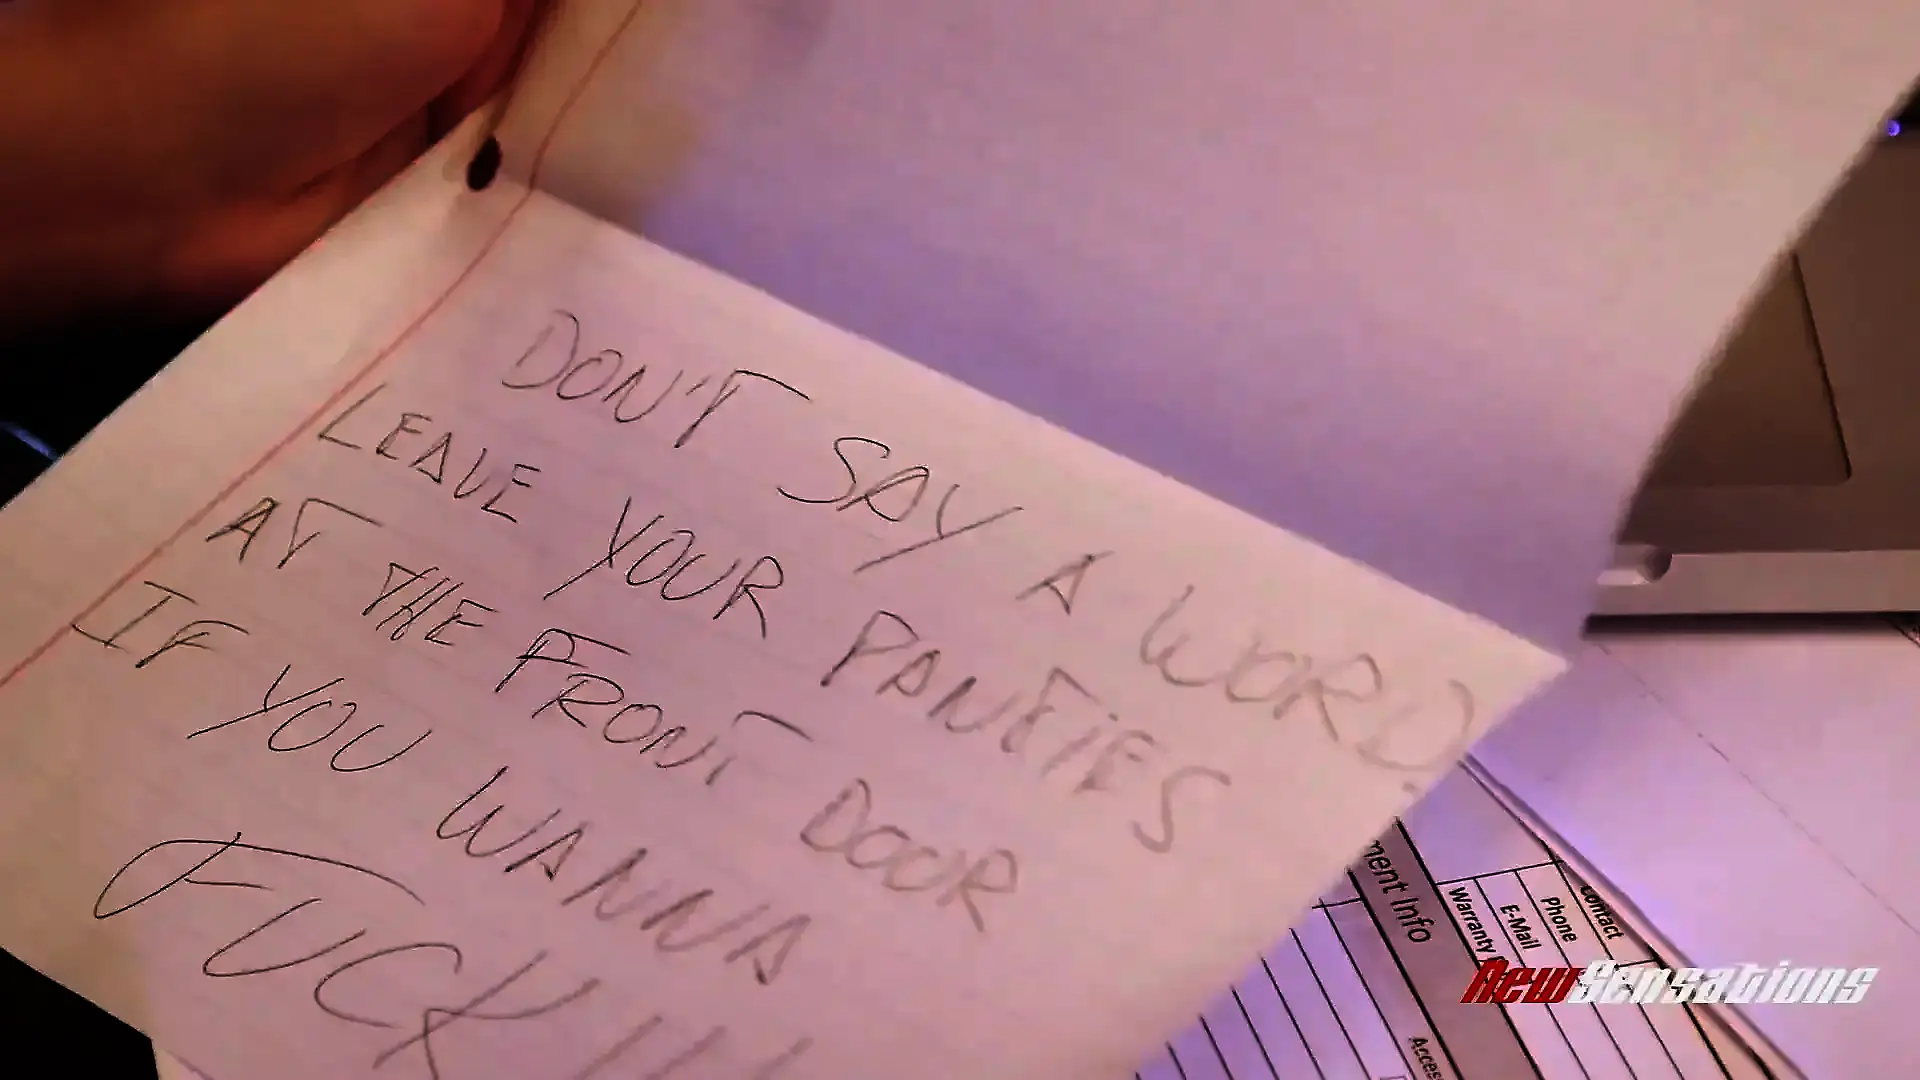 DON'T SAY A WORD.
LEAVE YOUR PANTIES
AT THE FRONT DOOR
IF YOU WANNA
FUCK!!!
ment Info
Contact
Phone
E-Mail
Warranty
NewSensations